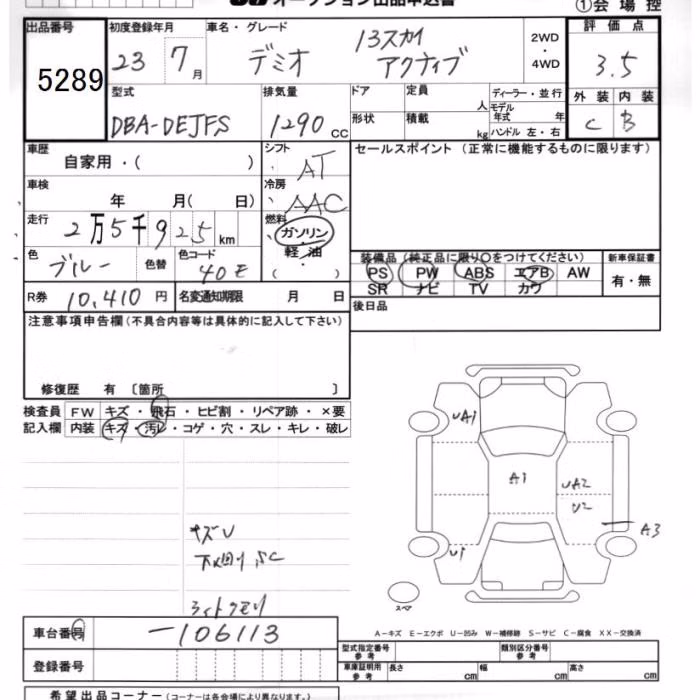 オークション出品申込書
①会場控
出品番号
5289
初度登録年月
23 7月
車名・グレード
デミオ
13スカイ
アクティブ
2WD
・
4WD
評価点
3.5
外装 内装
C B
型式
DBA-DEJFS
排気量
1290 CC
ドア
形状
定員
人
積載
kg
ディーラー・並行
モデル
年式 年
ハンドル 左・右
車歴
自家用・( )
シフト
AT
セールスポイント (正常に機能するものに限ります)
車検
年 月( 日)
冷房
AAC
走行
2万5千925km
燃料
ガソリン
軽油
( )
色
ブルー
色替
色コード
40E
装備品(純正品に限り〇をつけてください)
PS PW ABS エアB AW
SR ナビ TV カワ
新車保証書
有・無
R券 10,410円
名変通知期限 月 日
後日品
注意事項申告欄(不具合内容等は具体的に記入して下さい)
修復歴 有 〔箇所 〕
検査員
記入欄
FW キズ・飛石・ヒビ割・リペア跡・×要
内装 キズ・汚レ・コゲ・穴・スレ・キレ・破レ
UA1
A1
UA2
U2
A3
U1
キズU
下廻りSC
ライトクモリ
スペア
A-キズ E-エクボ U-凹み W-補修跡 S-サビ C-腐食 XX-交換済
車台番号
-106113
登録番号
型式指定番号
参考
類別区分番号
参考
車庫証明用
参考
長さ cm
幅 cm
高さ cm
希望出品コーナー(コーナーは各会場により異なります。)